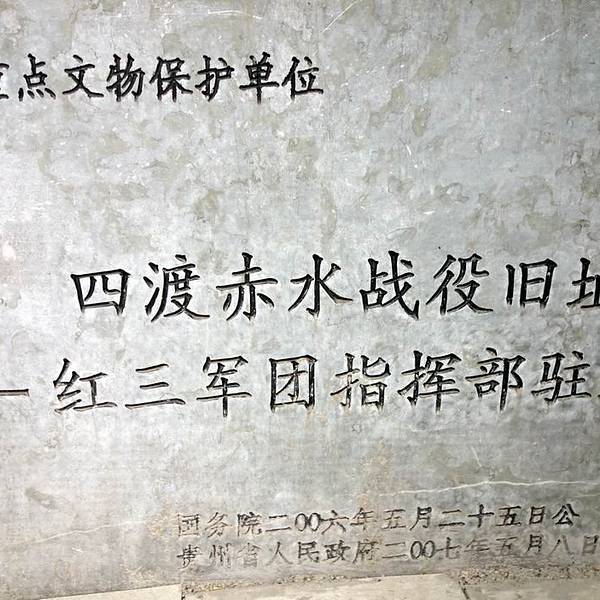 点文物保护单位
四渡赤水战役旧
—红三军团指挥部驻
国务院二〇〇六年五月二十五日公
贵州省人民政府二〇〇七年五月八日